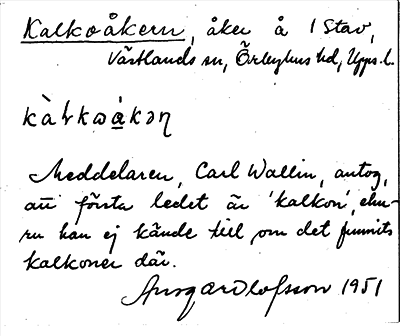 Kalkoåkern, åker å 1 Stav,
Västlands sn, Örbyhus hd, Upps. l.
kàlkoå̱kəɳ
Meddelaren, Carl Wallin, antog,
att första ledet är 'kalkon', ehu-
ru han ej kände till om det funnits
kalkoner där.
Ansgar Olofsson 1951